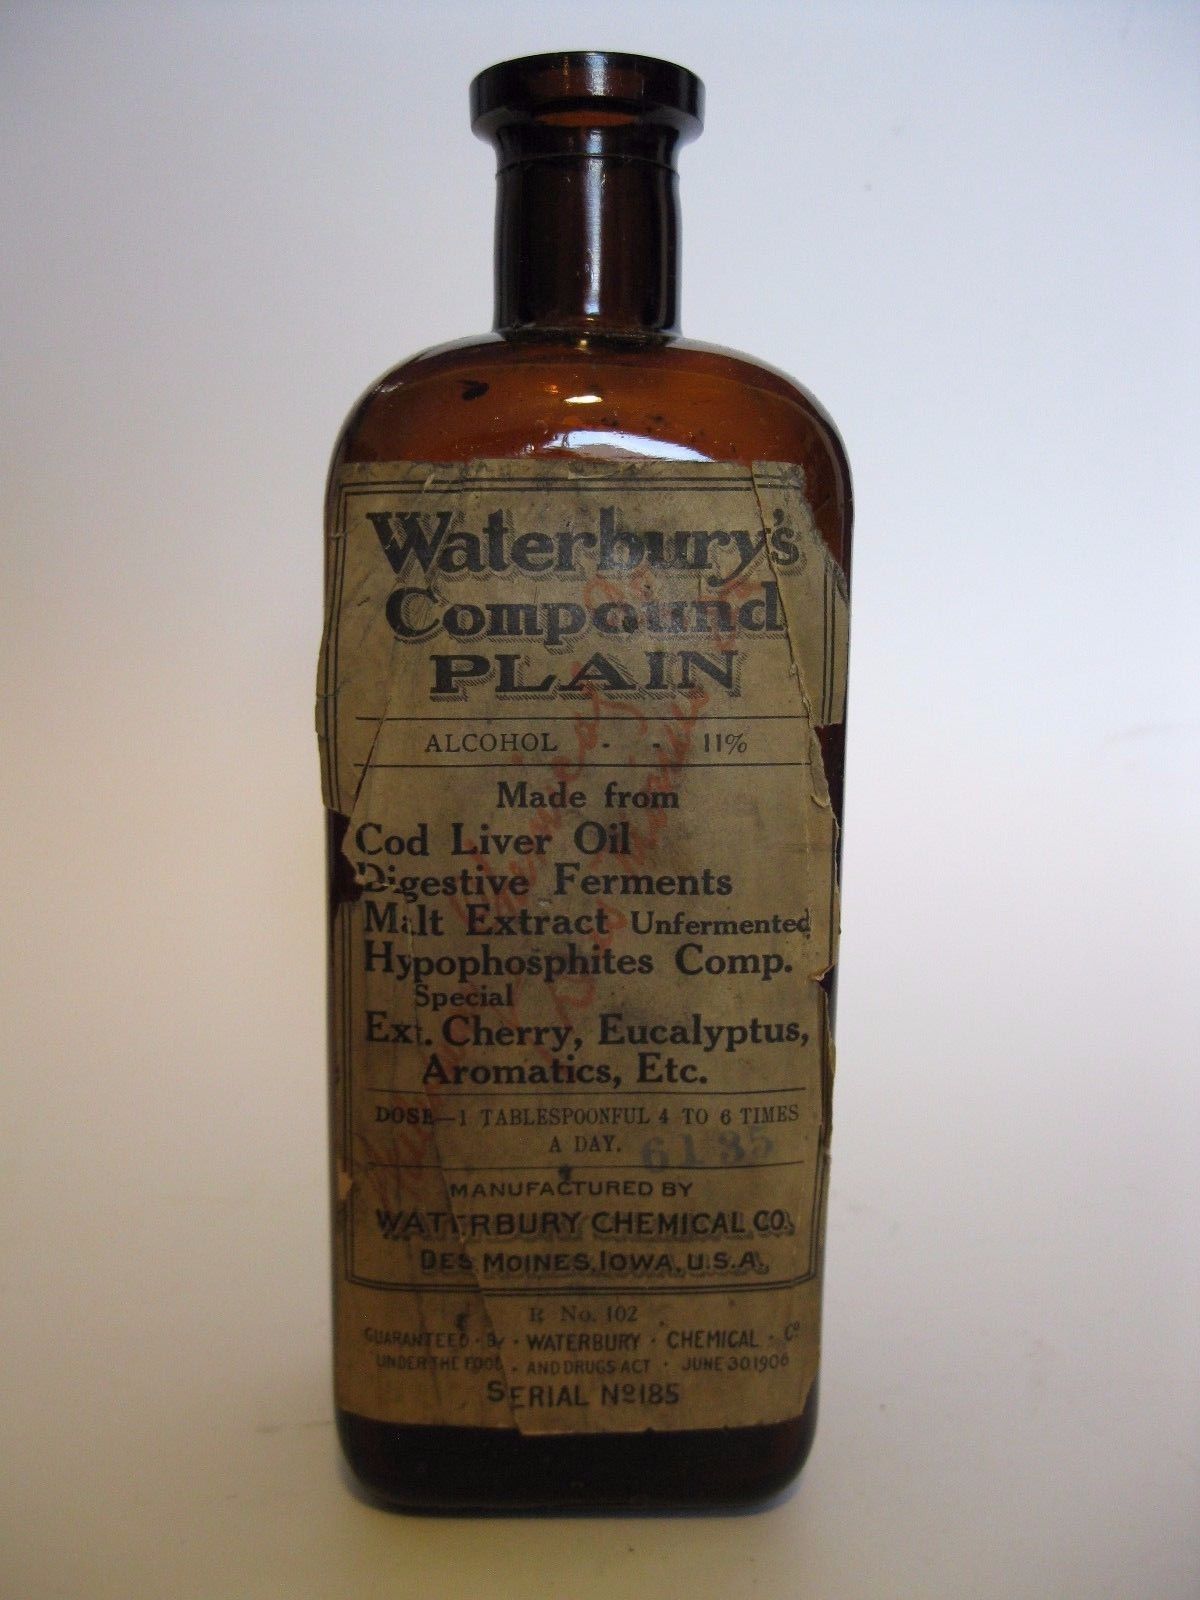 Waterbury's
Compound
PLAIN
ALCOHOL - - 11%
Made from
Cod Liver Oil
Digestive Ferments
Malt Extract Unfermented
Hypophosphites Comp.
Special
Ext. Cherry, Eucalyptus,
Aromatics, Etc.
DOSE—1 TABLESPOONFUL 4 TO 6 TIMES
A DAY. 6185
MANUFACTURED BY
WATERBURY CHEMICAL CO.
DES MOINES, IOWA, U.S.A.
R No. 102
GUARANTEED · BY · WATERBURY · CHEMICAL · Cº
UNDER THE FOOD · AND DRUGS ACT · JUNE 30 1906
SERIAL Nº 185